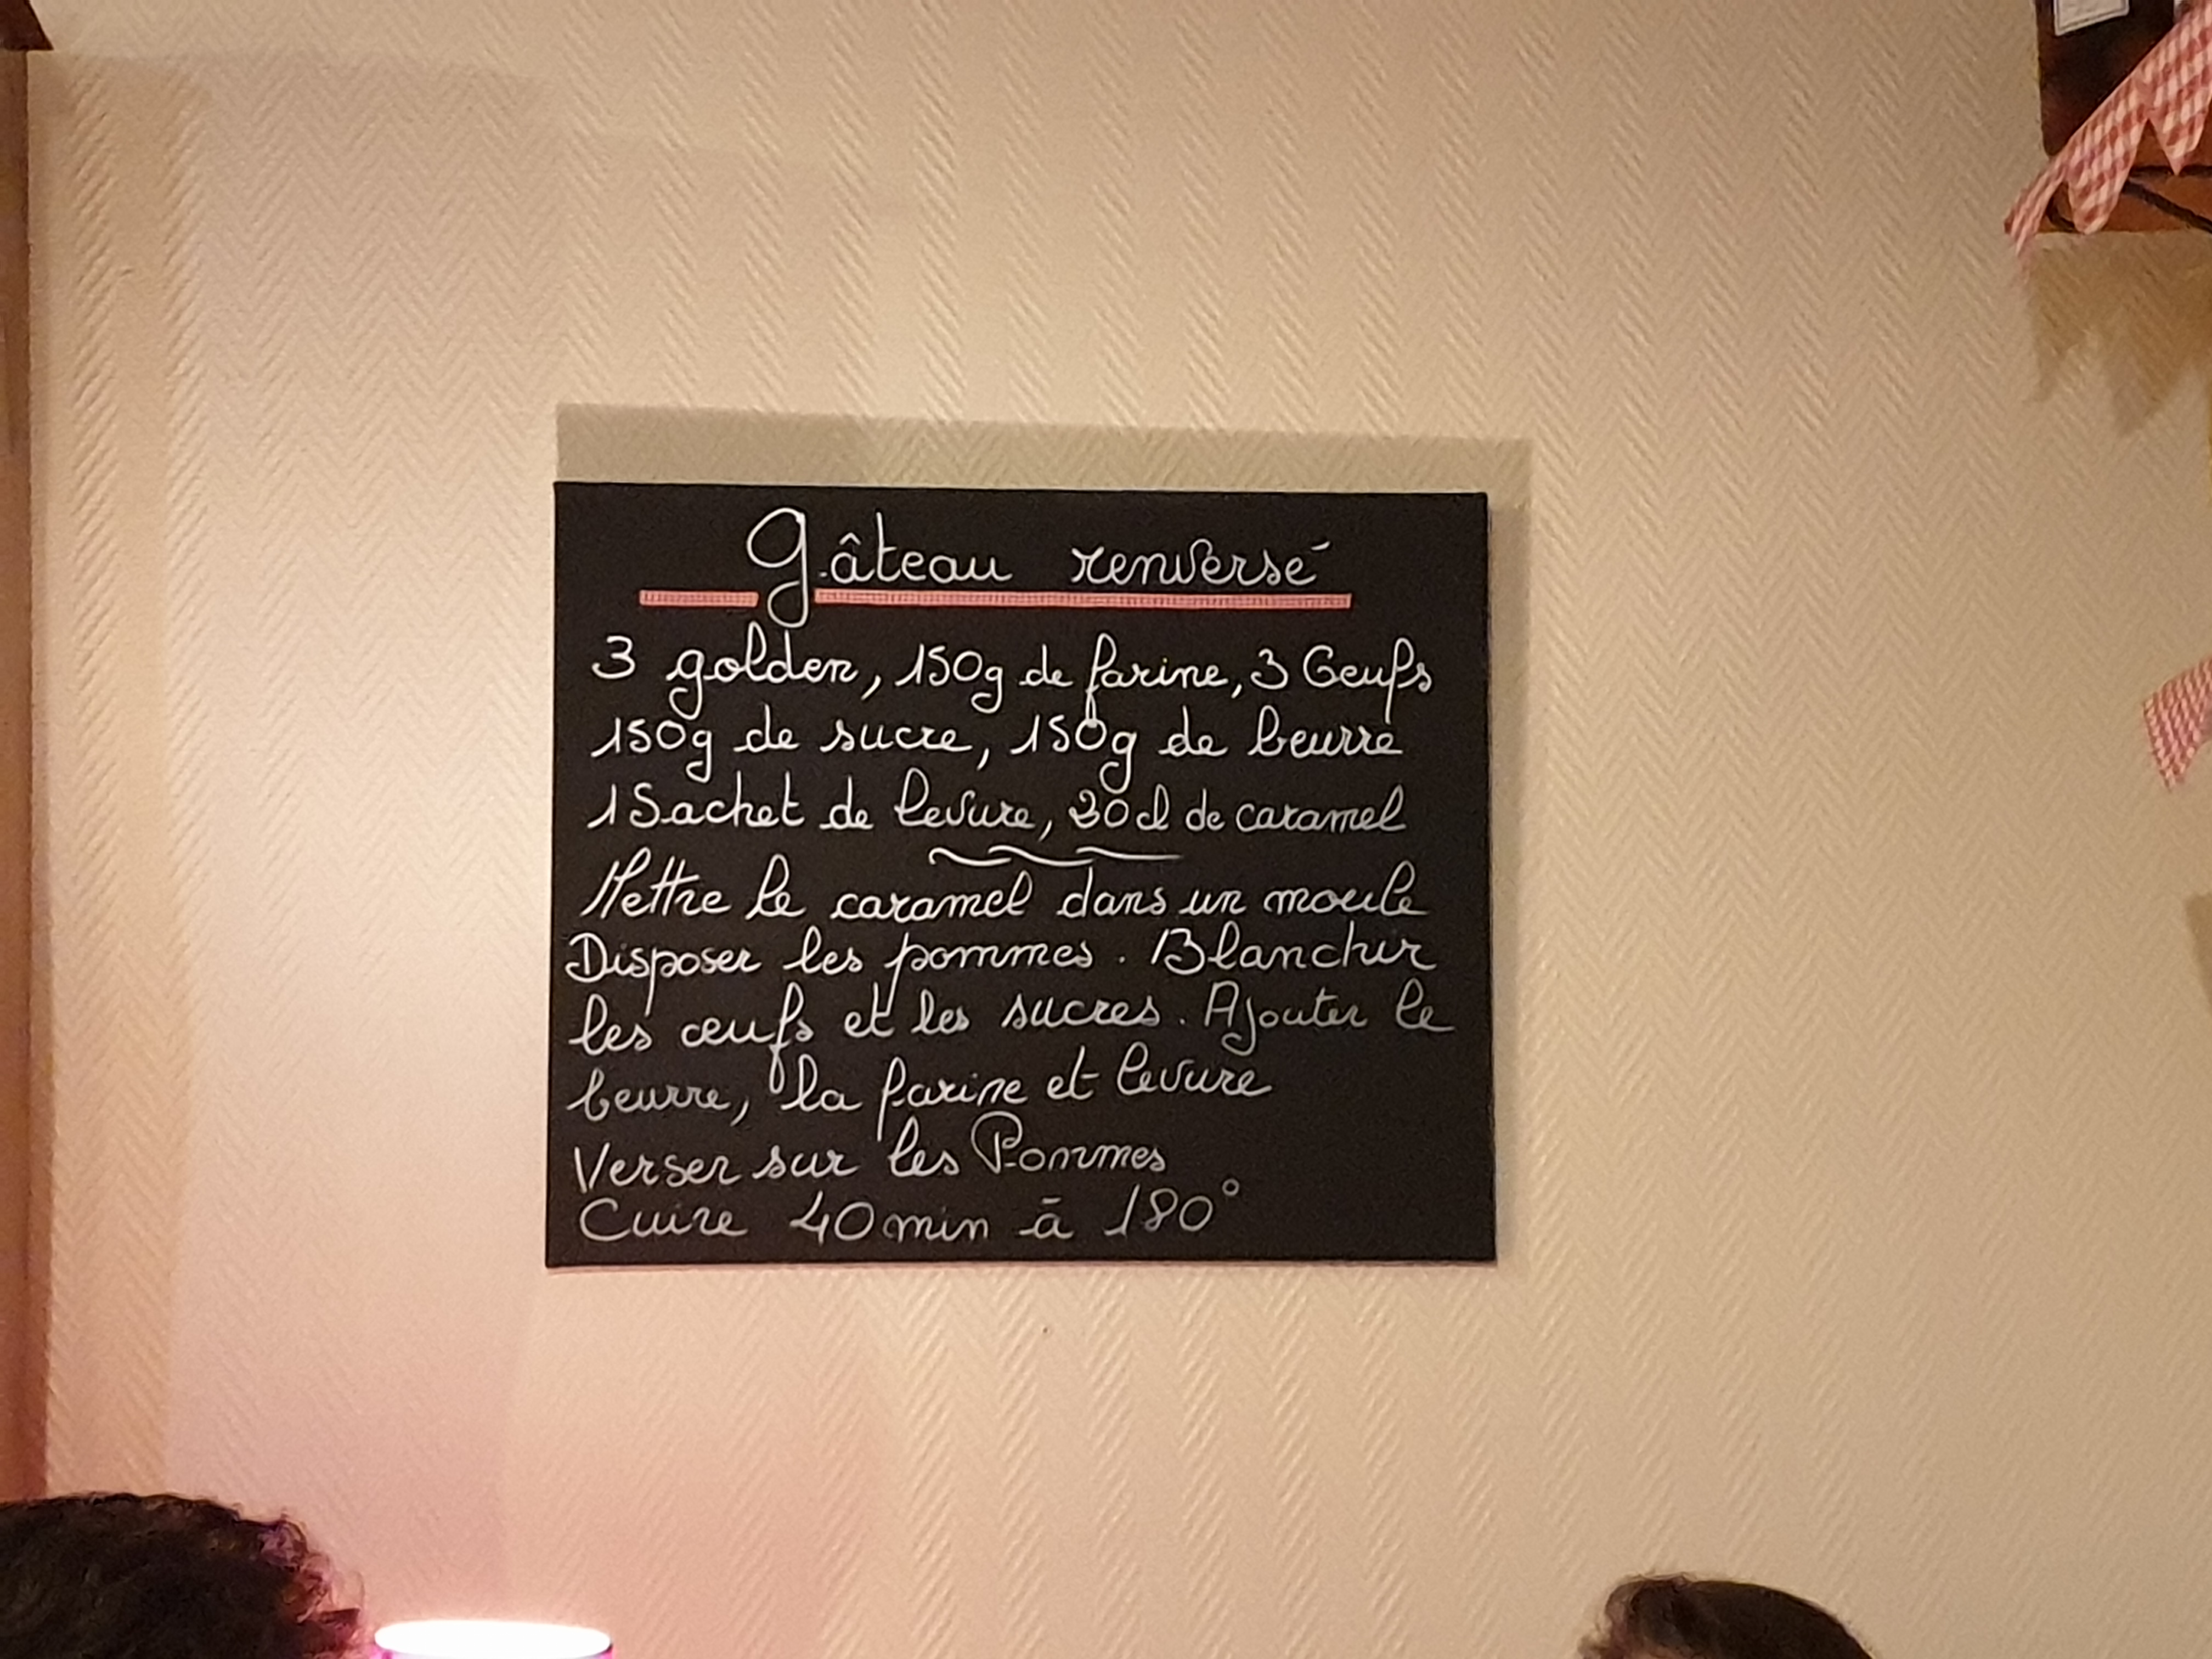 Gâteau renversé
3 golden, 150g de farine, 3 Oeufs
150g de sucre, 150g de beurre
1 Sachet de levure, 20cl de caramel
Mettre le caramel dans un moule
Disposer les pommes. Blanchir
les œufs et les sucres. Ajouter le
beurre, la farine et levure
Verser sur les Pommes
Cuire 40min à 180°